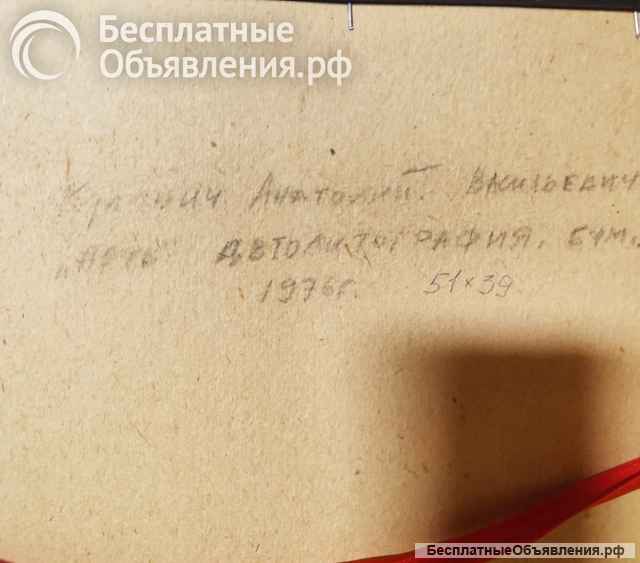 Бесплатные
Объявления.рф
Анатолий. Васильевич
Автолитография, бум.
1976г. 51×39
БесплатныеОбъявления.рф